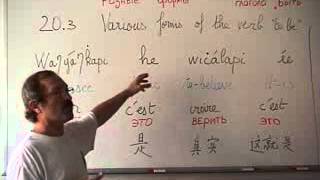 Разные формы глагола быть
20.3 Various forms of the verb "to be"
Waŋyáŋkapi he wičálapi ée
see is-believe it-is
c'est croire c'est
ЭТО ВЕРИТЬ ЭТО
是 真实 这就是